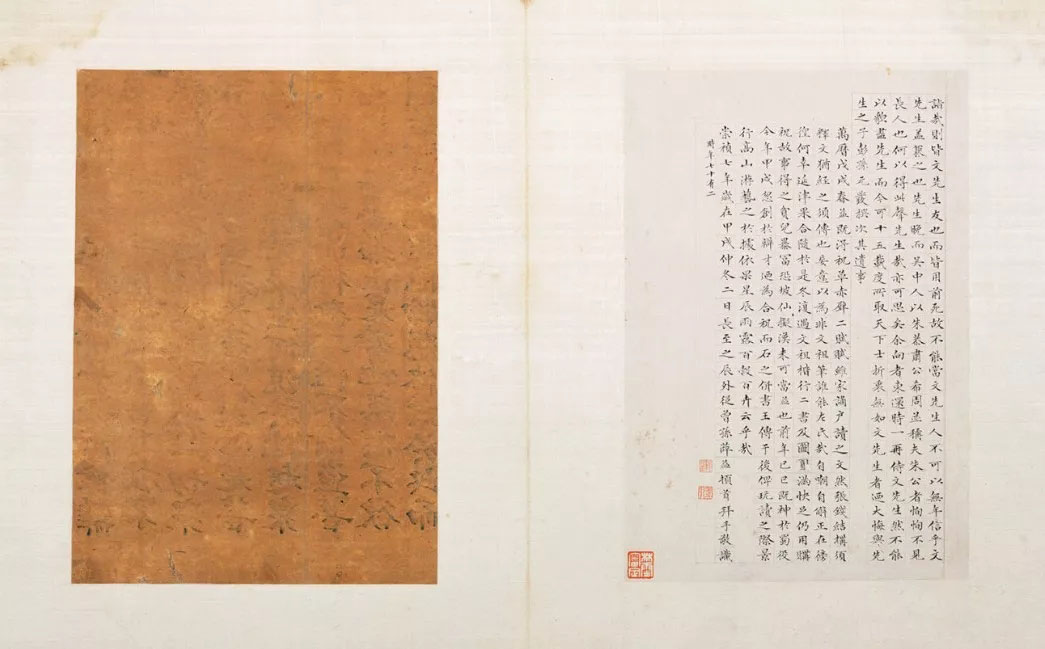 詣哉則皆文先生友也而皆用前死故不能當文先生人不可以無年信乎文
先生蓋兼之也先生晚而吳中人以朱恭肅公希周並稱夫朱公者恂恂不見
長人也何以得此聲先生哉亦可思矣余向者東還時一再侍文先生然不能
以貌盡先生而今可十五載度所取天下士折衷無如文先生者迺大悔與先
生之子彭孫元發撰次其遺事
萬曆戊戌春益既得祝草赤壁二賦賦雖家滿戶讀之文然張結構須
釋文猶經之須傳也妄意以為非文祖筆誰能左氏哉自嘲自解正在徬
徨何幸延津果合隨於是冬復過文祖楷行二書及圖滿快足仍用購
祝故事得之貧兒暴富恐坡仙擬漢未可當益也前年己巳既神於蜀後
今年甲戌忽創於辯才迺為合祝而石之併書王傳于後俾玩讀之際景
行高山游藝之於據依果星辰雨露百穀百卉云乎哉
崇禎七年歲在甲戌仲冬二日長至之辰外從曾孫薛益頓首拜手敬識
時年七十有二